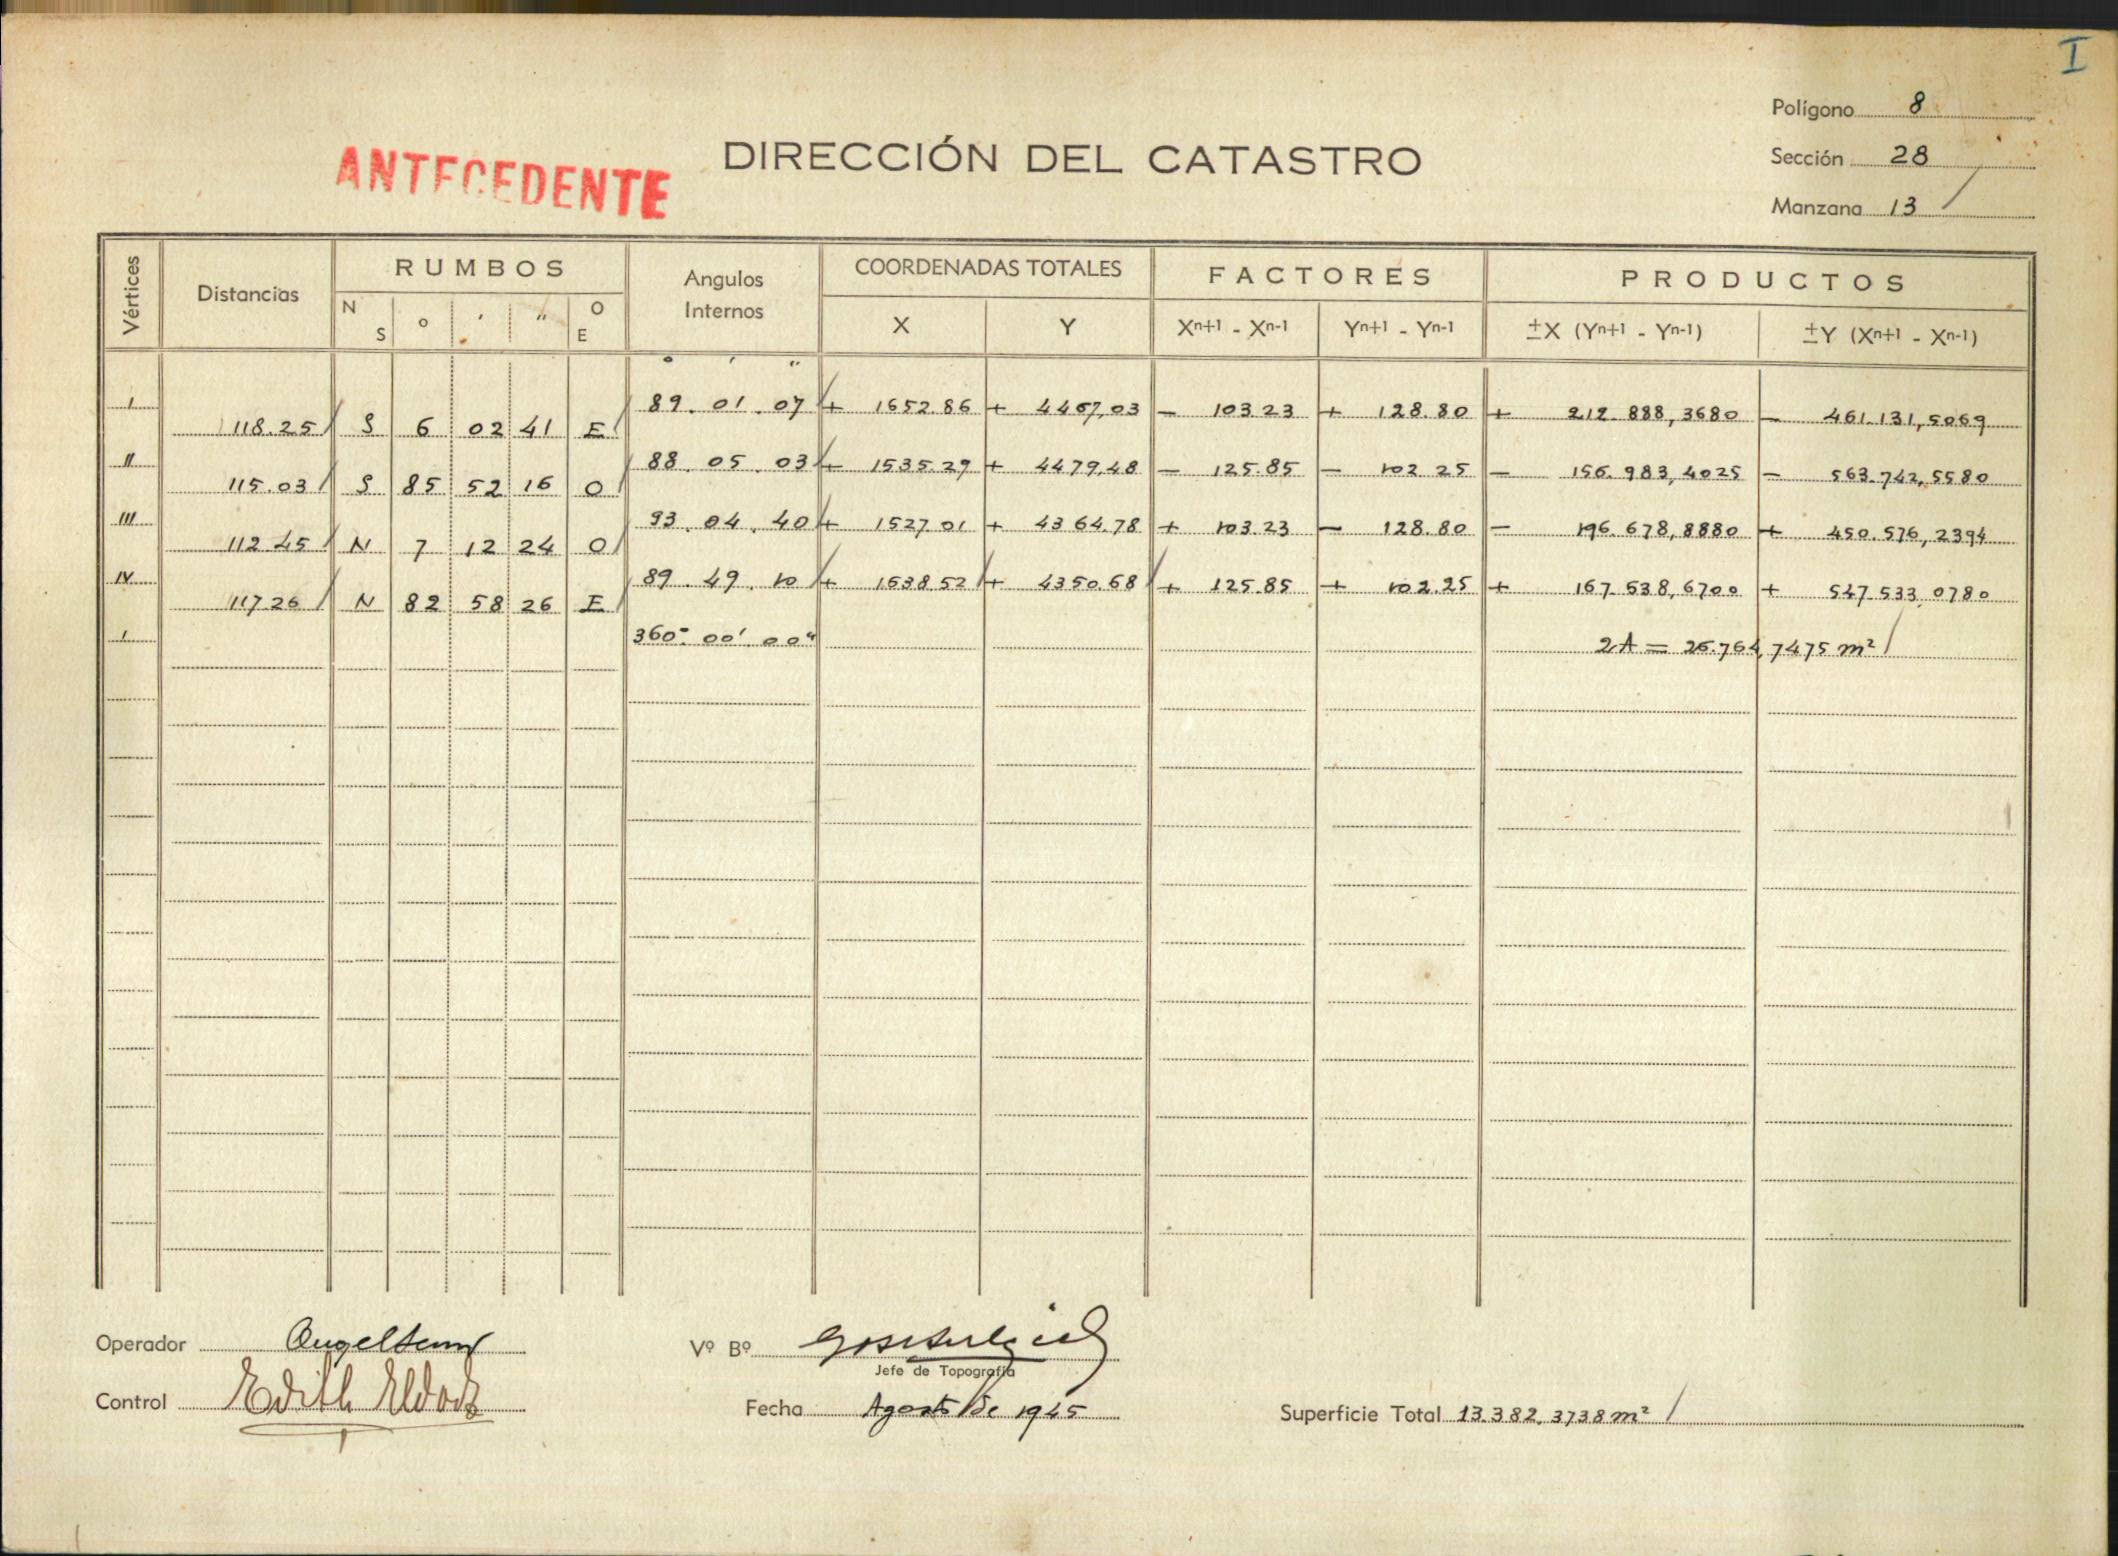 I
Polígono 8
Sección 28
Manzana 13 /
ANTECEDENTE
DIRECCIÓN DEL CATASTRO
Vértices Distancias RUMBOS Angulos Internos COORDENADAS TOTALES FACTORES PRODUCTOS
N S ° ' " O E X Y Xn+1 - Xn-1 Yn+1 - Yn-1 ±X (Yn+1 - Yn-1) ±Y (Xn+1 - Xn-1)
° ' "
I 89.01.07 + 1652.86 + 4467,03 - 103.23 + 128.80 + 212.888,3680 - 461.131,5069
118.25 S 6 02 41 E
II 88.05.03 + 1535.29 + 4479,48 - 125.85 - 102.25 - 156.983,4025 - 563.742,5580
115.03 S 85 52 16 O
III 93.04.40 + 1527.01 + 4364.78 + 103.23 - 128.80 - 196.678,8880 + 450.576,2394
112.45 N 7 12 24 O
IV 89.49.10 + 1638.52 + 4350.68 + 125.85 + 102.25 + 167.538,6700 + 547.533,0780
117.26 N 82 58 26 E
I 360° 00' 00" 2A = 26.764,7475 m² /
Operador
Vº Bº
Jefe de Topografía
Control Edith
Fecha Agosto de 1945
Superficie Total 13.382,3738 m² /